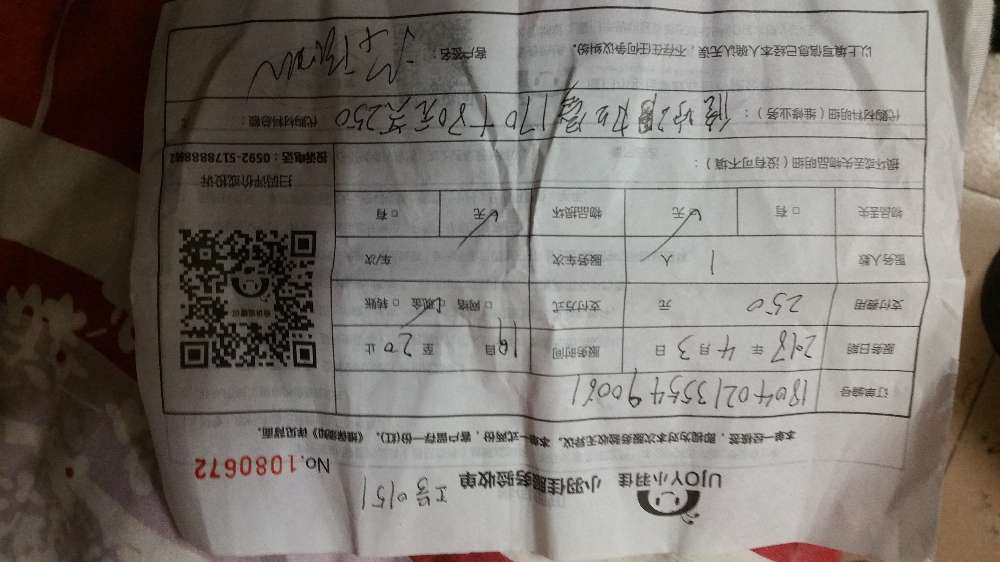 UJOY小羽佳 小羽佳服务验收单 工号0151 No.1080672
本单一经接签，即视为对本次服务验收无异议。本单一式两份，客户留存一份(红)，《维保须知》详见背面。
订单编号 1804021355490061
服务日期 2018 年 4 月 3 日 服务时间 自 19 至 20 止
支付费用 250 元 支付方式 □ 网络 □ 现金 □ 转账
服务人数 1 人 服务车次 车/次
物品丢失 □ 有 □ 无 物品损坏 □ 无 □ 有
扫码评价或投诉
投诉电话：0592-5178888转2
损坏或丢失物品明细（没有可不填）：
代购材料明细（维修业务）： 170+80元共250 代购材料总额：
以上填写信息已经本人确认无误，不存在任何争议纠纷。 客户签名：